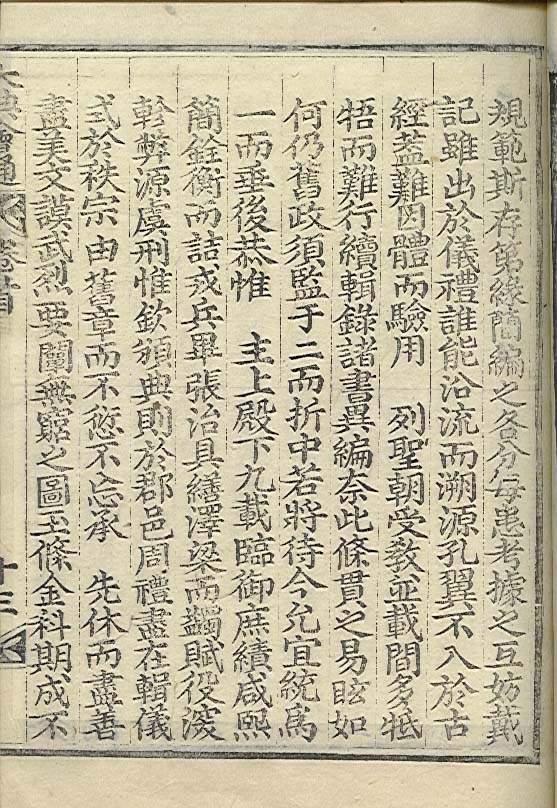 規範斯存第緣簡編之各分每患考據之互妨戴
記雖出於儀禮誰能沿流而溯源孔翼不入於古
經蓋難因體而驗用　列聖朝受敎並載間多牴
牾而難行續輯錄諸書異編奈此條貫之易眩如
何仍舊政須監于二而折中若將待今允宜統爲
一而垂後恭惟　主上殿下九載臨御庶績咸熙
簡銓衡而詰戎兵畢張治具繕澤梁而蠲賦役濬
軫弊源虞刑惟欽頒典則於郡邑周禮盡在輯儀
式於秩宗由舊章而不愆不忘承　先休而盡善
盡美文謨武烈要闡無窮之圖玉條金科期成不
大典會通　卷首　十三